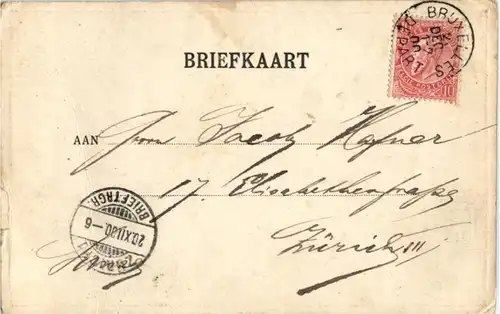 BRUXELLES
DEPART
DEC
10
BRIEFKAART
AAN Herrn Jacob Hafner
17. Elisabethenstrasse
Zürich III
BRIEFTRGR.
20.XII.00.-6